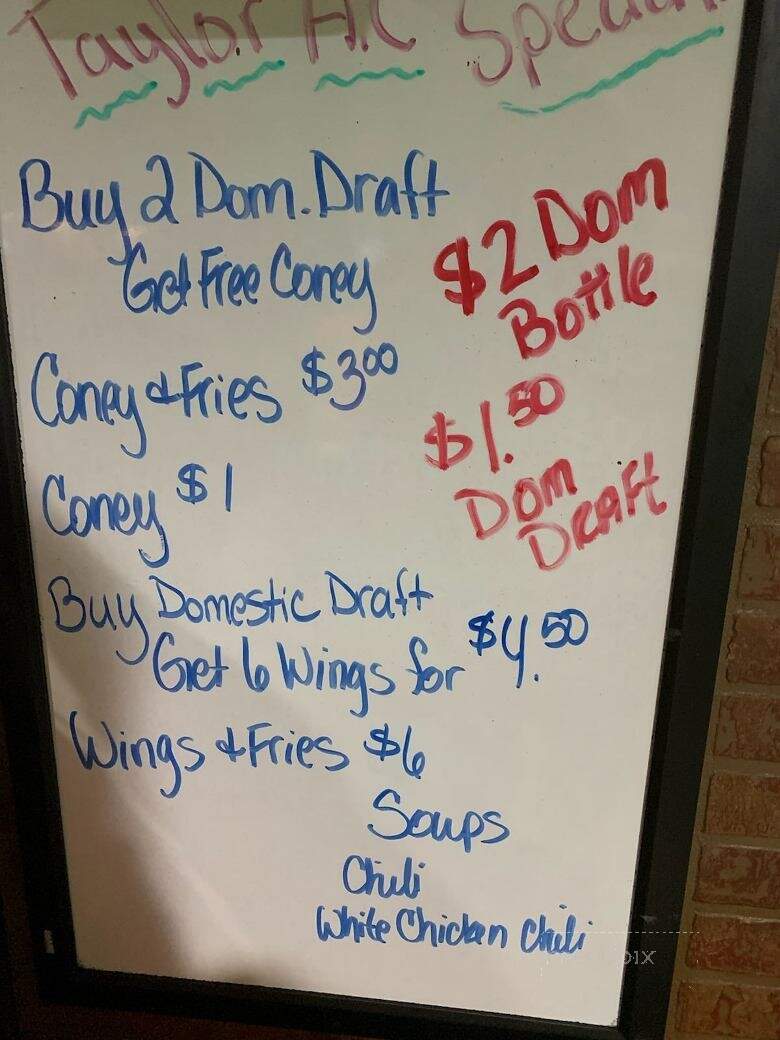 Taylor A.C Specials
Buy 2 Dom. Draft
Get Free Coney
$2 Dom
Bottle
Coney & Fries $3.00
$1.50
Dom
Draft
Coney $1
Buy Domestic Draft
Get 6 Wings for $4.50
Wings & Fries $6
Soups
Chili
White Chicken Chili